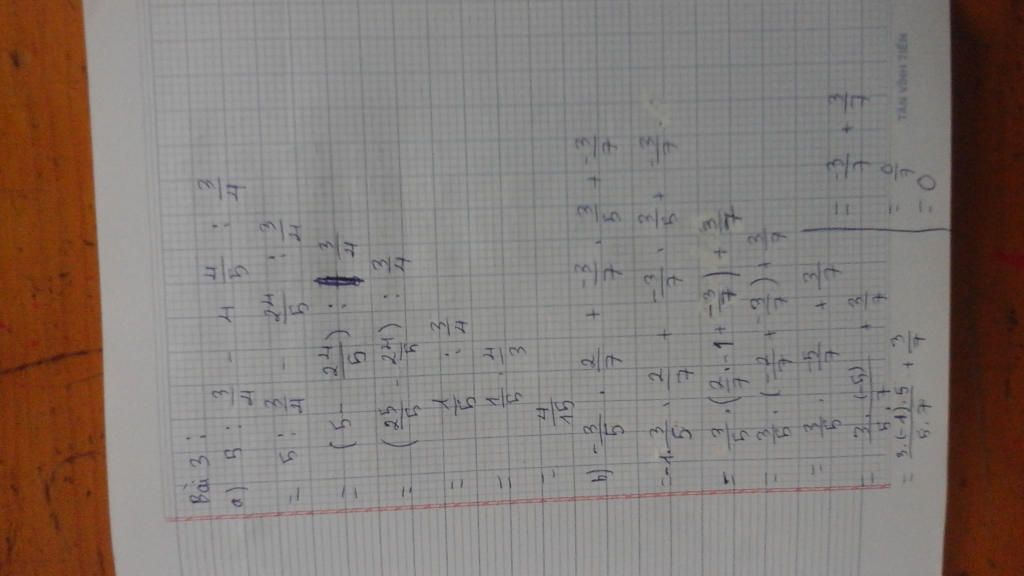 Bài 3:
a) 5 : 3/4 - 4 4/5 : 3/4
= 5 : 3/4 - 24/5 : 3/4
= (5 - 24/5) : 3/4
= (25/5 - 24/5) : 3/4
= 1/5 : 3/4
= 1/5 . 4/3
= 4/15
b) -3/5 . 2/7 + -3/7 . 3/5 + -3/7
= -1 . 3/5 . 2/7 + -3/7 . 3/5 + -3/7
= 3/5 . (2/7 . -1 + -3/7) + 3/7
= 3/5 . (-2/7 + -3/7) + 3/7
= 3/5 . -5/7 + 3/7
= 3 . (-5)/5 . 7 + 3/7
= 3.(-1).5/5.7 + 3/7
= -3/7 + 3/7
= 0/7
= 0
TÂN VĨNH TIẾN